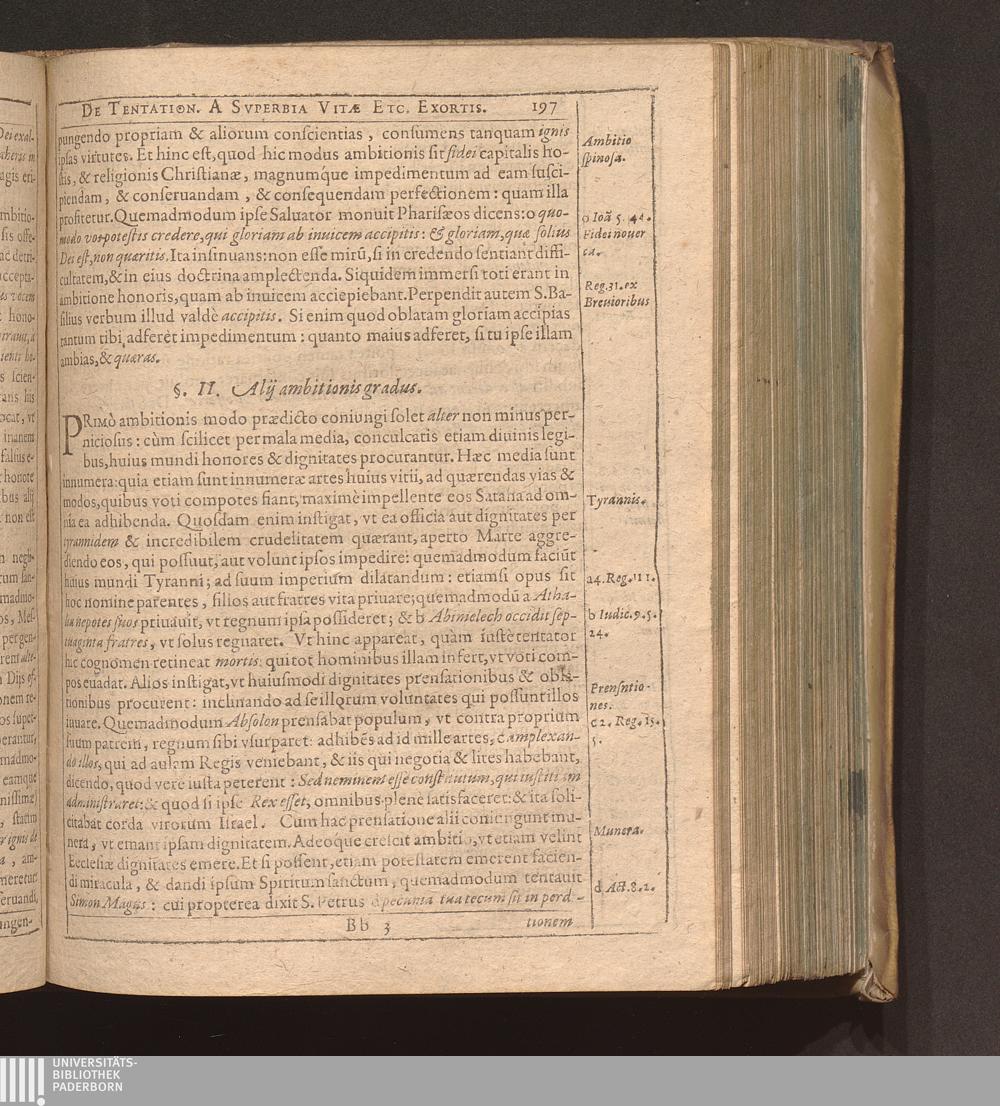 DE TENTATION. A SVPERBIA VITÆ ETC. EXORTIS. 197
pungendo propriam & aliorum conſcientias, conſumens tanquam ignis
ipſas virtutes. Et hinc eſt, quod hic modus ambitionis ſit fidei capitalis ho-
ſtis, & religionis Chriſtianæ, magnumq́ue impedimentum ad eam ſuſci-
piendam, & conſeruandam, & conſequendam perfectionem: quam illa
profitetur. Quemadmodum ipſe Saluator monuit Phariſæos dicens: o quo-
modo vos poteſtis credere, qui gloriam ab inuicem accipitis: & gloriam, quæ ſolius
Dei eſt, non quæritis. Ita inſinuans: non eſſe mirũ, ſi in credendo ſentiant diffi-
cultatem, & in eius doctrina amplectenda. Siquidem immerſi toti erant in
ambitione honoris, quam ab inuicem acciepiebant. Perpendit autem S. Ba-
ſilius verbum illud valdè accipitis. Si enim quod oblatam gloriam accipias
tantum tibi adferèt impedimentum: quanto maius adferet, ſi tu ipſe illam
ambias, & quæras.
Ambitio
ſpinoſa.
o Ioã 5. 44.
Fidei nouer
ca.
Reg. 31. ex
Breuioribus
§. II. Alij ambitionis gradus.
PRIMÒ ambitionis modo prædicto coniungi ſolet alter non minus per-
nicioſus: cùm ſcilicet per mala media, conculcatis etiam diuinis legi-
bus, huius mundi honores & dignitates procurantur. Hæc media ſunt
innumera: quia etiam ſunt innumeræ artes huius vitii, ad quærendas vias &
modos, quibus voti compotes fiant, maximè impellente eos Satana ad om-
nia ea adhibenda. Quoſdam enim inſtigat, vt ea officia aut dignitates per
tyrannidem & incredibilem crudelitatem quærant, aperto Marte aggre-
diendo eos, qui poſſunt, aut volunt ipſos impedire: quemadmodum faciũt
huius mundi Tyranni; ad ſuum imperium dilatandum: etiamſi opus ſit
hoc nomine parentes, filios aut fratres vita priuare; quemadmodũ a Atha-
lia nepotes ſuos priuauit, vt regnum ipſa poſſideret; & b Abimelech occidit ſep-
tuaginta fratres, vt ſolus regnaret. Vt hinc appareat, quàm iuſtè tentator
hic cognomen retineat mortis: qui tot hominibus illam infert, vt voti com-
pos euadat. Alios inſtigat, vt huiuſmodi dignitates prenſationibus &
procurent: inclinando ad ſe illorum voluntates qui poſſunt illos
iuuare. Quemadmodum Abſolon prenſabat populum, vt contra proprium
ſuum patrem, regnum ſibi vſurparet: adhibẽs ad id mille artes, c amplexan-
do illos, qui ad aulam Regis veniebant, & iis qui negotia & lites habebant,
dicendo, quod verè iuſta peterent: Sed neminem eſſe conſtitutum, qui iuſtitiam
adminiſtraret: & quod ſi ipſe Rex eſſet, omnibus plenè ſatisfaceret: & ita ſoli-
citabat corda virorum Iſrael. Cum hac prenſatione alii coniungunt mu-
nera, vt emant ipſam dignitatem. Adeoq́ue creſcit ambitio, vt etiam velint
Eccleſiæ dignitates emere. Et ſi poſſent, etiam poteſtatem emerent facien-
di miracula, & dandi ipſum Spiritum ſanctum, quemadmodum tentauit
Simon Magus: cui propterea dixit S. Petrus d pecunia tua tecum ſit in perdi-
Tyrannis.
a 4. Reg. 11 1.
b Iudic. 9. 5.
24.
Prenſatio-
nes.
c 2. Reg. 15.
5.
Munera.
d Act. 8. 2.
Bb 3 tionem
UNIVERSITÄTS-
BIBLIOTHEK
PADERBORN